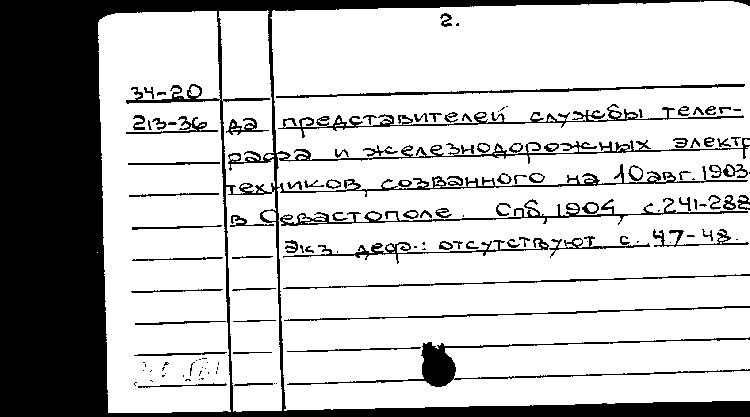 2.
34-20
213-36 да представителей службы телег-
рафа и железнодорожных электр
техников, созванного на 10 авг. 1903
в Севастополе. Спб, 1904, с.241-288
Экз. деф.: отсутствуют с. 47-48.